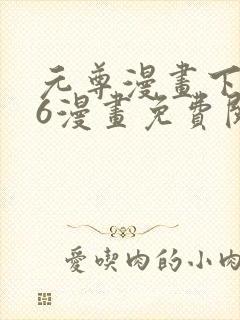 元尊漫畫下
6漫畫免費閱
愛喫肉的小肉